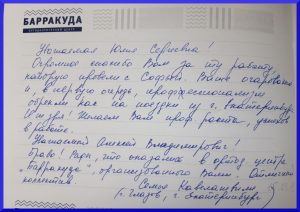 БАРРАКУДА
Уважаемая Юлия Сергеевна!
Огромное спасибо Вам за ту работу,
которую провели с Софией. Ваше
и, в первую очередь, профессионализм
обрекли нас на поездки из г. Екатеринбург
Желаем Вам проф. роста, успехов
в работе.
Уважаемый Алексей Владимирович!
Браво! Рады, что оказались в центре
"Барракуда", организованном Вами. Отличный
коллектив!
Семья
(г. Глазов, г. Екатеринбург)